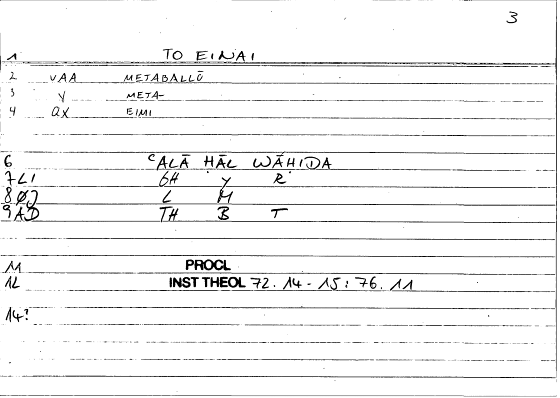 3
1 TO EINAI
2 VAA METABALLŌ
3 Y META-
4 QX EIMI
6 ʿALĀ HĀL WĀHIDA
7 LI GH Y R
8 ØJ L M
9 AD TH B T
11 PROCL
12 INST THEOL 72.14-15: 76.11
14?